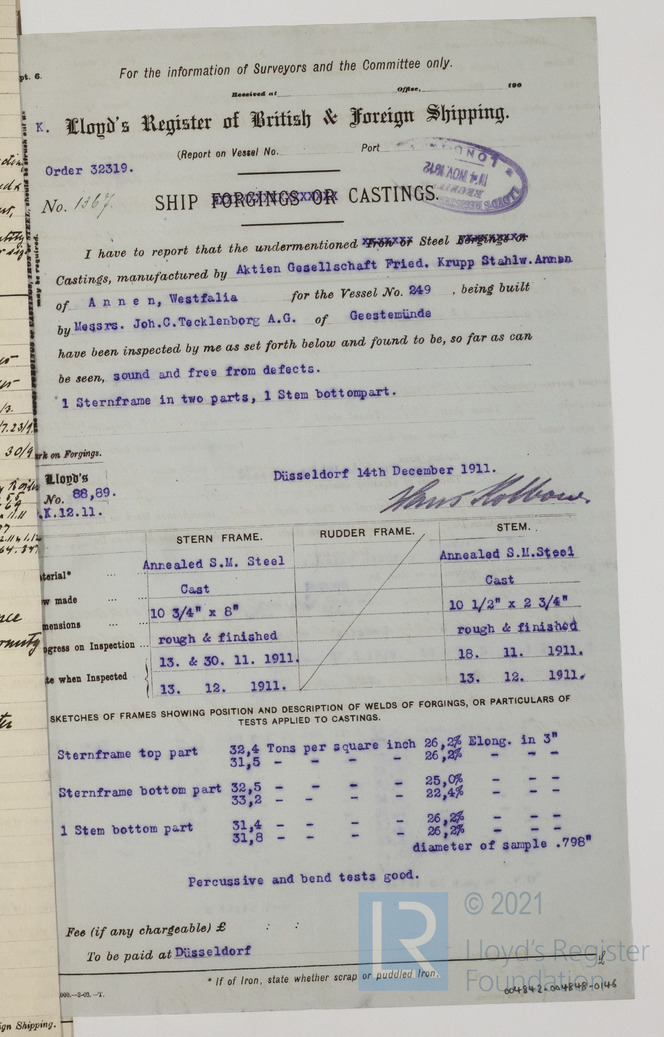 pt. 6.
For the information of Surveyors and the Committee only.
Received at Office, 190
K. Lloyd's Register of British & Foreign Shipping.
(Report on Vessel No. Port
Order 32319.
LLOYD'S REGISTER
14 NOV 1912
LONDON
No. 1367. SHIP FORGINGS OR CASTINGS.
I have to report that the undermentioned Iron or Steel Forgings or
Castings, manufactured by Aktien Gesellschaft Fried. Krupp Stahlw. Annen
of Annen, Westfalia for the Vessel No. 249 , being built
by Messrs. Joh.C.Tecklenborg A.G. of Geestemünde
have been inspected by me as set forth below and found to be, so far as can
be seen, sound and free from defects.
1 Sternframe in two parts, 1 Stem bottompart.
may be required.
rk on Forgings.
Lloyd's
No. 88,89.
.K.12.11.
Düsseldorf 14th December 1911.
STERN FRAME. RUDDER FRAME. STEM.
terial* ... ... Annealed S.M. Steel Annealed S.M.Steel
w made ... ... Cast Cast
mensions ... ... 10 3/4" x 8" 10 1/2" x 2 3/4"
ogress on Inspection ... rough & finished rough & finished
te when Inspected 13. & 30. 11. 1911. 18. 11. 1911.
13. 12. 1911. 13. 12. 1911.
SKETCHES OF FRAMES SHOWING POSITION AND DESCRIPTION OF WELDS OF FORGINGS, OR PARTICULARS OF
TESTS APPLIED TO CASTINGS.
Sternframe top part 32,4 Tons per square inch 26,2% Elong. in 3"
31,5 - - - - 26,2% - - -
Sternframe bottom part 32,5 - - - - 25,0% - - -
33,2 - - - - 22,4% - - -
1 Stem bottom part 31,4 - - - - 26,2% - - -
31,8 - - - - 26,2% - - -
diameter of sample .798"
Percussive and bend tests good.
Fee (if any chargeable) £ : :
To be paid at Düsseldorf
* If of Iron, state whether scrap or puddled Iron.
000.—2-03.—T.
gn Shipping.
004842-004848-0146
LR
© 2021
Lloyd's Register
Foundation